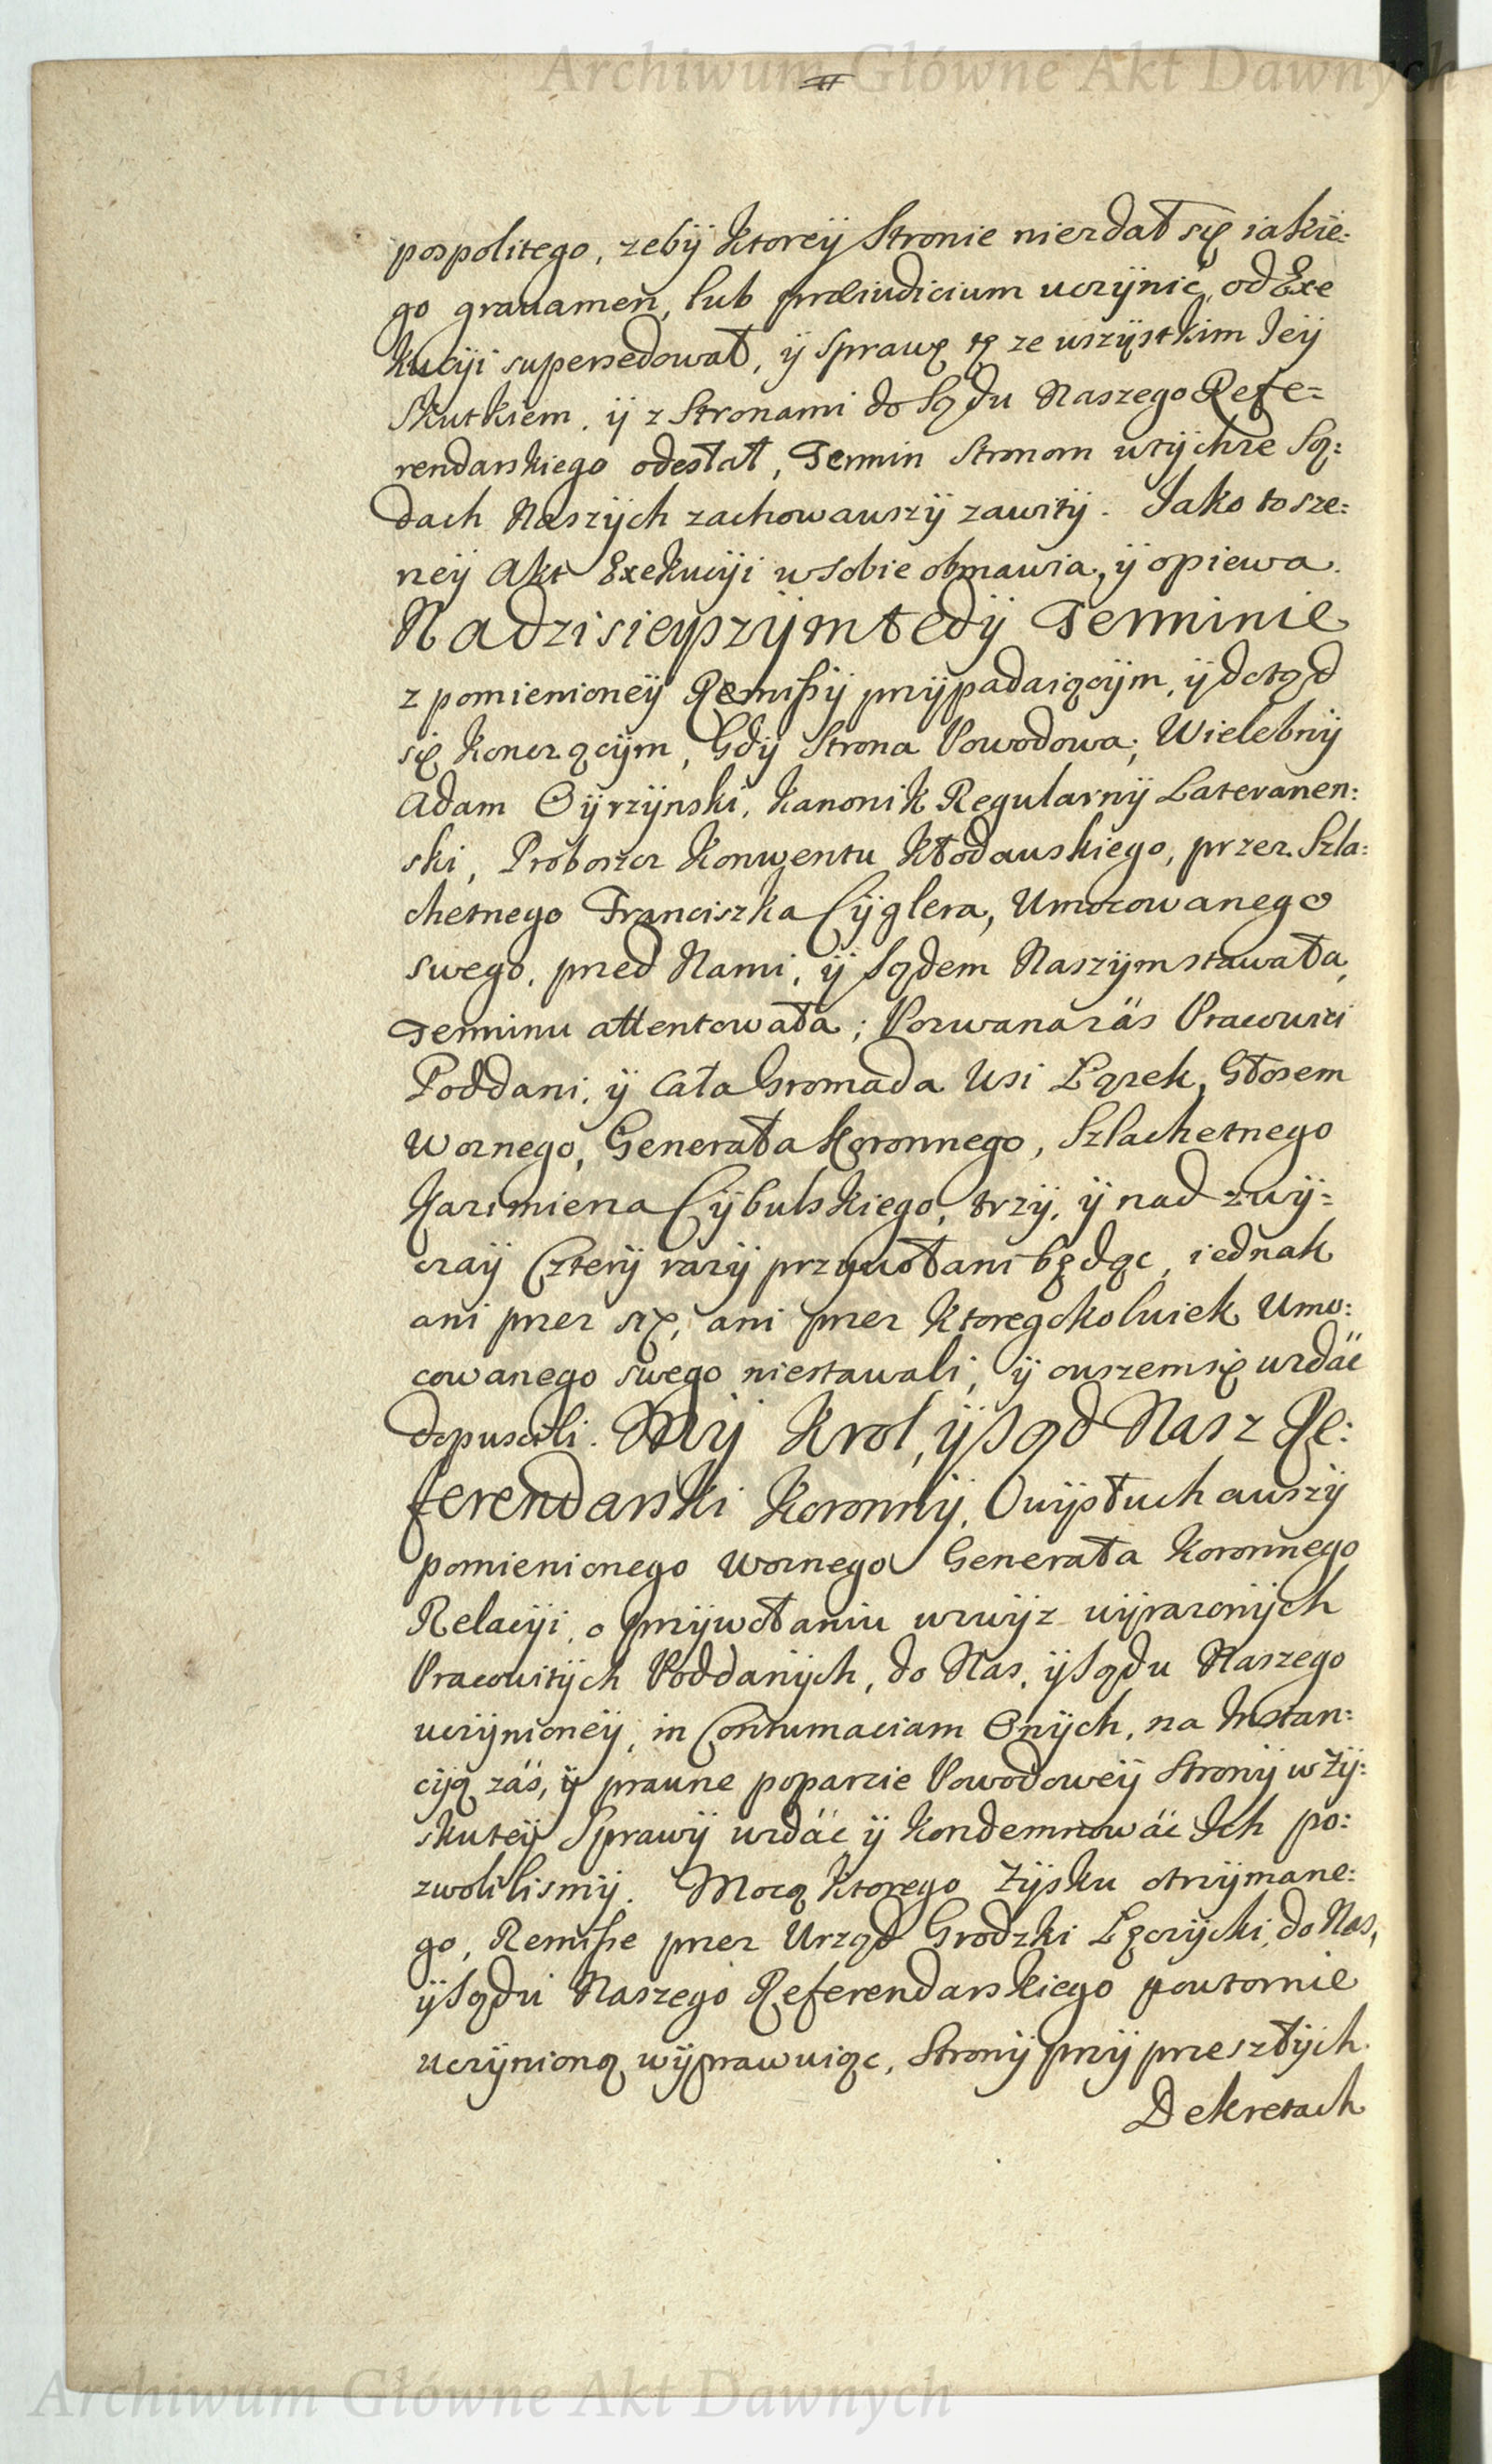 Archiwum Główne Akt Dawnych
pospolitego, zebÿ ktoreÿ Stronie niezdał się iakie:
go grauamen, lub præiudicium uczÿnić, od Exe
kucÿi supersedował, ÿ sprawę tę ze wszÿstkim Jeÿ
Skutkiem, ÿ z Stronami do Sądu Naszego Refe=
rendarskiego odesłał, Termin Stronom wtÿchze Są:
dach Naszÿch zachowawszÿ zawitÿ. Jako tosze:
rzeÿ Akt Exekucÿi wsobie obmawia, ÿ opiewa.
Nadzisieyszÿm tedÿ Terminie
z pomienioneÿ Remissÿ przÿpadaiącÿm, ÿ dotąd
się kończącÿm, Gdÿ Strona Powodowa; Wielebnÿ
Adam Oÿrzÿnski, Kanonik Regularnÿ Lateranen:
ski, Proboszcz Konwentu Kłodauskiego, przez Szla:
chetnego Franciszka Cÿglera, Umocowanego
swego, przed Nami, ÿ Sądem Naszÿm stawała,
Terminu attentowała; Pozwana zäs Pracowici
Poddani, ÿ cała Gromada Wsi Łązek, Głosem
Woznego, Generała Koronnego, Szlachetnego
Kazimierza Cÿbulskiego, trzÿ, ÿ nad zwÿ=
czaÿ Czterÿ razÿ przywołani będąc, iednak
ani przez się, ani przez ktoregokolwiek Umo:
cowanego swego niestawali, ÿ owszem się wzdäć
dopuscili. Mÿ Krol, ÿ Sąd Nasz Re:
ferendarski Koronnÿ, Owÿsłuchawszÿ
pomienionego Woznego Generała Koronnego
Relacÿi, o przÿwołaniu wzwÿz wÿrazonÿch
Pracowitÿch Poddanÿch, do Nas, ÿ Sądu Naszego
uczÿnioneÿ, in Contumaciam Onÿch, na Instan:
cÿą zäs, ÿ prawne poparcie Powodoweÿ Stronÿ w Zÿ:
skuteÿ Sprawÿ wzdäć ÿ kondemnowäć Ich po:
zwolilismÿ. Mocą ktorego Zÿsku otrzÿmane:
go, Remisse przez Urząd Grodzki Łęczÿcki, do Nas,
ÿ Sądu Naszego Referendarskiego powtornie
uczÿnioną wÿprawuiąc, Stronÿ przÿ przeszłÿch
Dekretach
Archiwum Główne Akt Dawnych